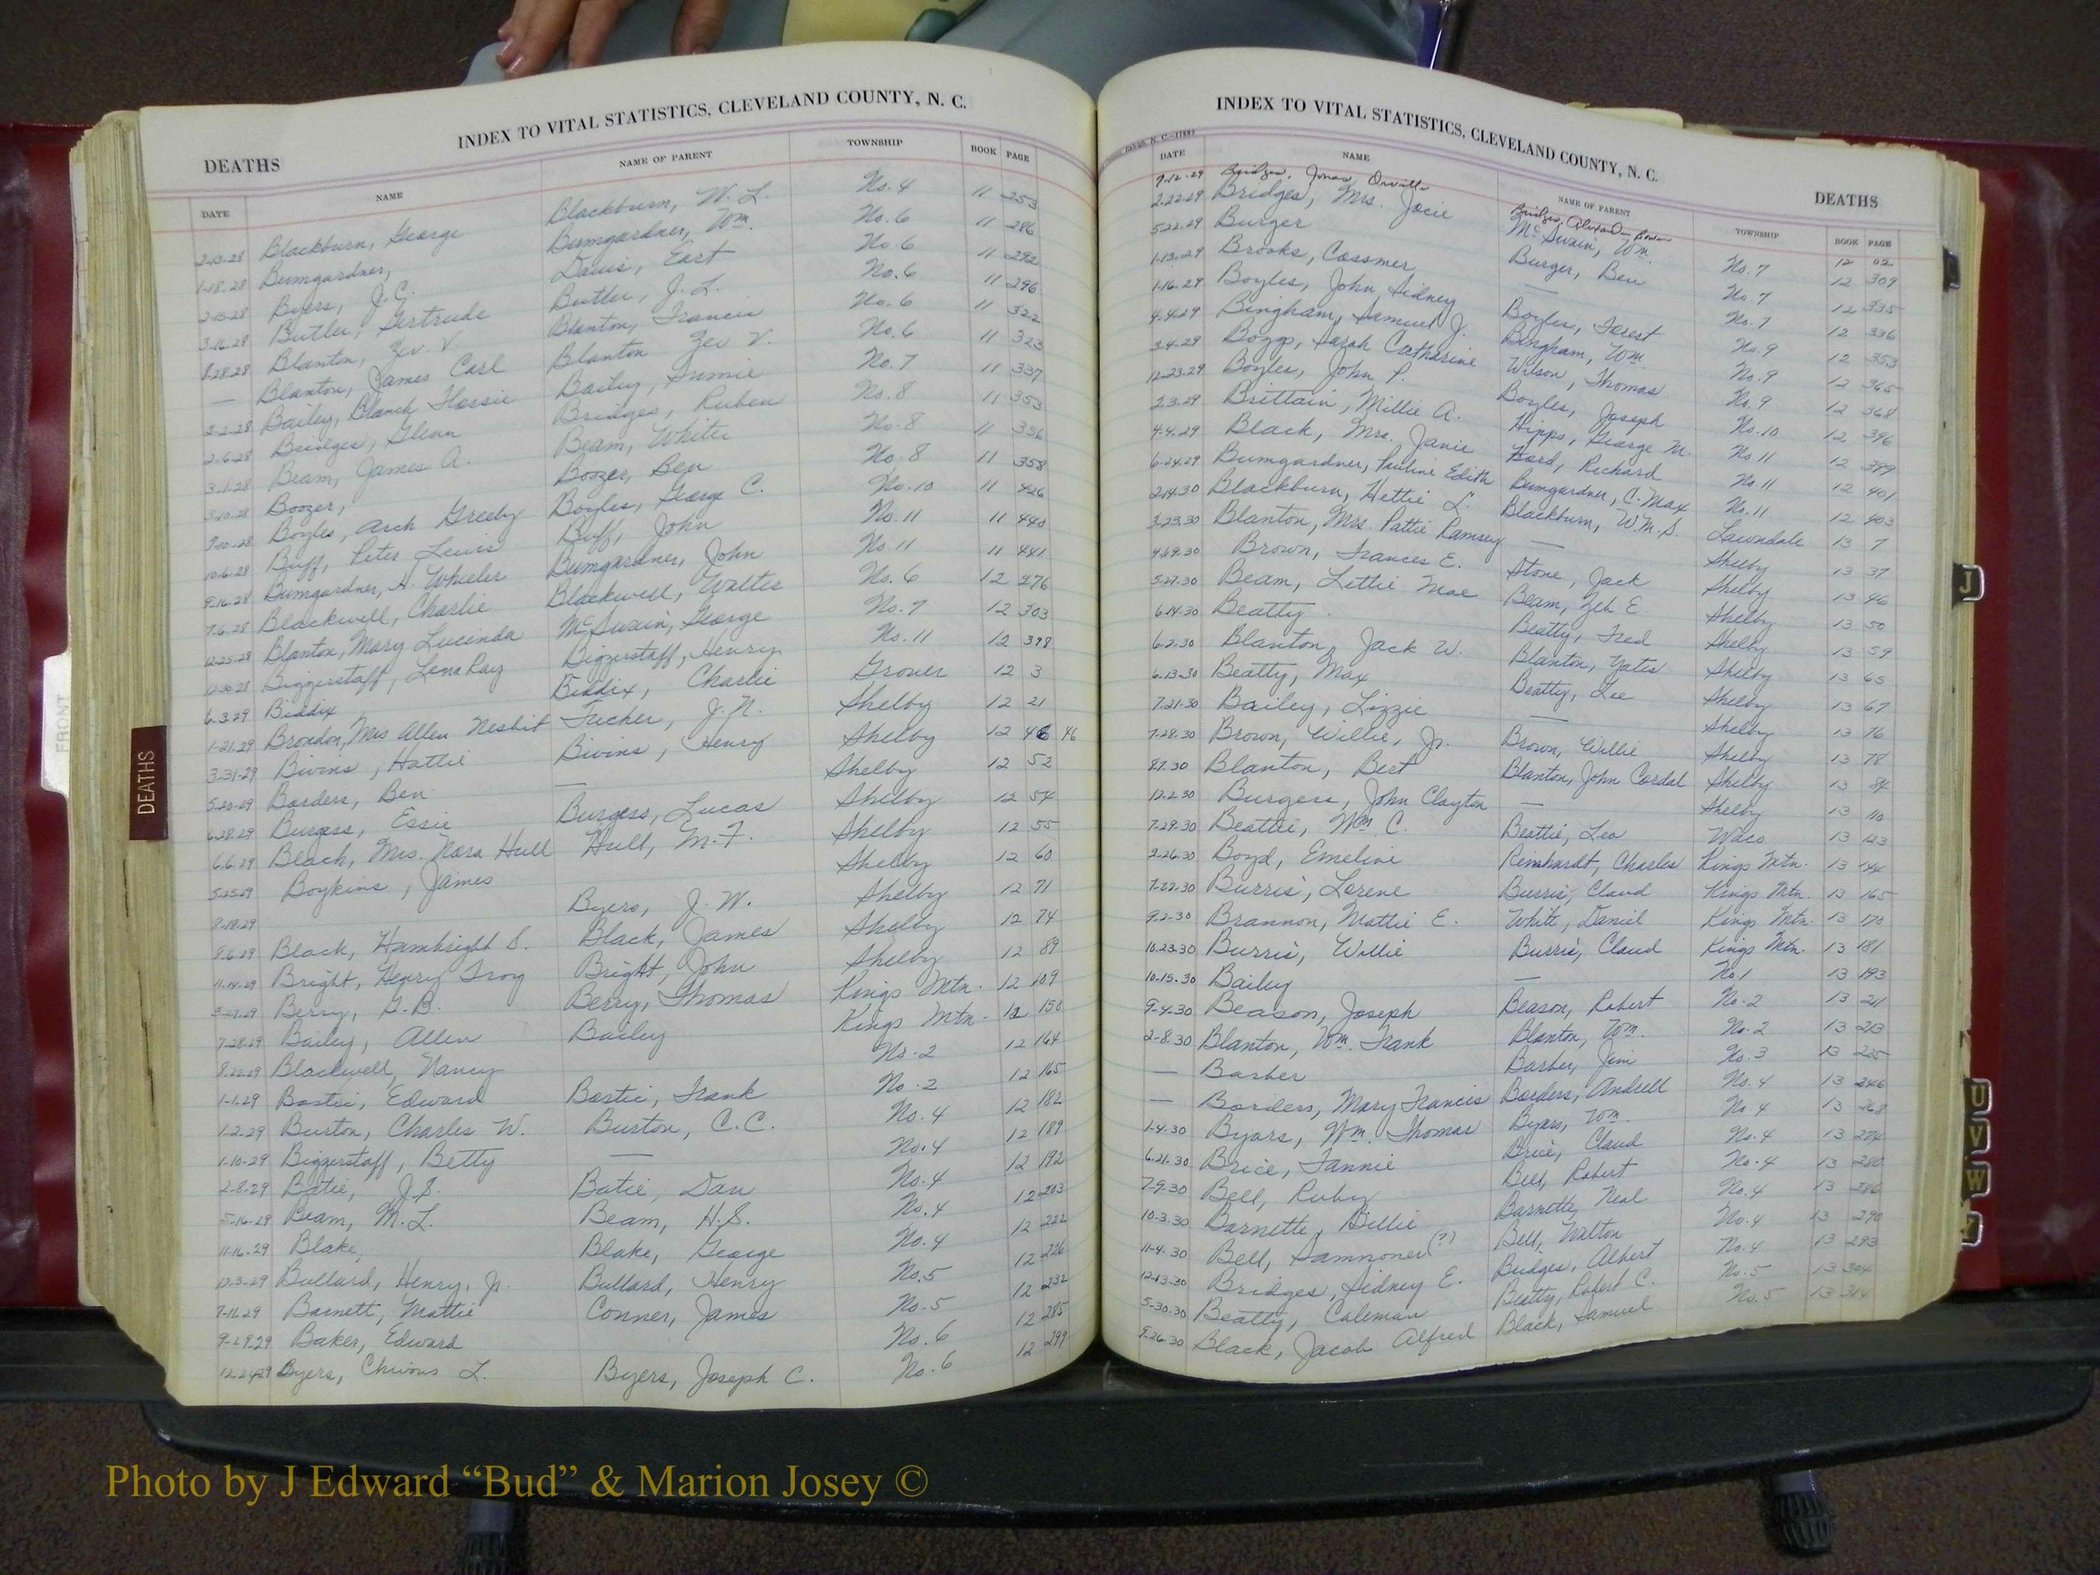 INDEX TO VITAL STATISTICS, CLEVELAND COUNTY, N. C.
DEATHS
DATE NAME NAME OF PARENT TOWNSHIP BOOK PAGE
2-13-28 Blackburn, George Blackburn, W. L. No. 4 11 253
1-18-28 Bumgardner, Bumgardner, Wm. No. 6 11 286
2-15-28 Byers, J. C. Davis, East No. 6 11 292
3-16-28 Butler, Gertrude Butler, J. L. No. 6 11 296
8-28-28 Blanton, Zev. V Blanton, Francis No. 6 11 322
— Blanton, James Carl Blanton Zev V. No. 6 11 323
2-2-28 Bailey, Blanch Flossie Bailey, No. 7 11 337
2-6-28 Bridges, Glenn Bridges, Ruben No. 8 11 353
3-1-28 Beam, James A. Beam, White No. 8 11 356
3-10-28 Boozer, Boozer, Ben No. 8 11 358
9-10-28 Boyles, Arch Greeby Boyles, George C. No. 10 11 426
10-6-28 Buff, Peter Lewis Buff, John No. 11 11 440
9-16-28 Bumgardner, H. Wheeler Bumgardner, John No 11 11 441
7-6-28 Blackwell, Charlie Blackwell, Walter No. 6 12 276
12-25-28 Blanton, Mary Lucinda McSwain, George No. 7 12 303
12-30-28 Biggerstaff, Lena Ray Biggerstaff, Henry No. 11 12 398
6-3-29 Biddix Biddix, Charlie Grover 12 3
1-21-29 Brondon, Mrs Allen Nesbit Tucker, J. N. Shelby 12 21
3-31-29 Bivins, Hattie Bivins, Henry Shelby 12 46 46
5-20-29 Borders, Ben — Shelby 12 52
6-28-29 Burgess, Essie Burgess, Lucas Shelby 12 54
6-6-29 Black, Mrs. Nora Hull Hull, M. F. Shelby 12 55
5-25-29 Boykins, James Shelby 12 60
8-19-29 Byers, J. W. Shelby 12 71
8-6-29 Black, Hambright S. Black, James Shelby 12 74
11-14-29 Bright, Henry Troy Bright, John Shelby 12 89
3-27-29 Berry, G. B. Berry, Thomas Kings Mtn. 12 109
7-28-29 Bailey, Allen Bailey Kings Mtn. 12 150
8-22-29 Blackwell, Nancy No. 2 12 164
1-1-29 Bostic, Edward Bostic, Frank No. 2 12 165
1-2-29 Burton, Charles W. Burton, C. C. No. 4 12 182
1-10-29 Biggerstaff, Betty — No. 4 12 189
2-8-29 Batie, J. S. Batie, Dan No. 4 12 192
5-16-29 Beam, M. L. Beam, H. S. No. 4 12 203
11-16-29 Blake, Blake, George No. 4 12 222
12-3-29 Bullard, Henry, Jr. Bullard, Henry No. 5 12 226
7-11-29 Barnett, Mattie Conner, James No. 5 12 232
9-29-29 Baker, Edward No. 6 12 285
12-24-29 Byers, L. Byers, Joseph C. No. 6 12 299
INDEX TO VITAL STATISTICS, CLEVELAND COUNTY, N. C.
DEATHS
DATE NAME NAME OF PARENT TOWNSHIP BOOK PAGE
9-12-29 Bridges, Jonas Orville Bridges,
2-22-29 Bridges, Mrs. Jocie McSwain, Wm. No. 7 12 02
5-22-29 Burger Burger, Ben No. 7 12 309
1-13-29 Brooks, Cossmer — No. 7 12 335
1-16-29 Boyles, John Sidney Boyles, Forest No. 9 12 336
4-4-29 Bingham, Samuel J. Bingham, Wm. No. 9 12 353
3-4-29 Boggs, Sarah Catharine Wilson, Thomas No. 9 12 365
12-23-29 Boyles, John P. Boyles, Joseph No. 10 12 368
2-3-29 Brittain, Millie A. Hipps, George M. No 11 12 396
4-4-29 Black, Mrs. Janie Ford, Richard No 11 12 399
6-24-29 Bumgardner, Pauline Edith Bumgardner, C. Max No. 11 12 401
2-14-30 Blackburn, Hettie L. Blackburn, W. M. S. Lawndale 12 403
3-23-30 Blanton, Mrs. Pattie Ramsey — Shelby 13 7
4-69-30 Brown, Frances E. Stone, Jack Shelby 13 37
5-27-30 Beam, Lettie Mae Beam, Zeb E Shelby 13 46
6-14-30 Beatty Beatty, Fred Shelby 13 50
6-2-30 Blanton, Jack W. Blanton, Yates Shelby 13 59
6-13-30 Beatty, Max Beatty, Lee Shelby 13 65
7-21-30 Bailey, Lizzie — Shelby 13 67
7-28-30 Brown, Willie, Jr. Brown, Willie Shelby 13 76
8-7-30 Blanton, Bert Blanton, John Cordal Shelby 13 78
12-2-30 Burgess, John Clayton — Shelby 13 84
7-29-30 Beattie, Wm. C. Beattie, Leo Waco 13 110
2-26-30 Boyd, Emeline Reinhardt, Charles Kings Mtn. 13 123
7-22-30 Burris, Lorene Burris, Claud Kings Mtn. 13 144
9-2-30 Brannon, Mattie E. White, Daniel Kings Mtn. 13 165
10-23-30 Burris, Willie Burris, Claud Kings Mtn. 13 170
10-15-30 Bailey — No. 1 13 181
9-4-30 Beason, Joseph Beason, Robert No. 2 13 193
2-8-30 Blanton, Wm. Frank Blanton, Wm. No. 2 13 211
— Barber Barber, Jim No. 3 13 213
— Borders, Mary Francis Borders, Andrell No. 4 13 225
1-4-30 Byars, Wm. Thomas Byars, Wm. No 4 13 246
6-21-30 Brice, Fannie Brice, Claud No. 4 13 268
7-9-30 Bell, Ruby Bell, Robert No. 4 13 274
10-3-30 Barnette, Billie Barnette, Neal No. 4 13 280
11-4-30 Bell, Samnoner (?) Bell, Walton No. 4 13 286
12-13-30 Bridges, Sidney E. Bridges, Albert No. 4 13 290
5-30-30 Beatty, Coleman Beatty, Robert C. No. 5 13 304
9-26-30 Black, Jacob Alfred Black, Samuel No. 5 13 314
DEATHS
FRONT
J
U
V
W
Photo by J Edward “Bud” & Marion Josey ©